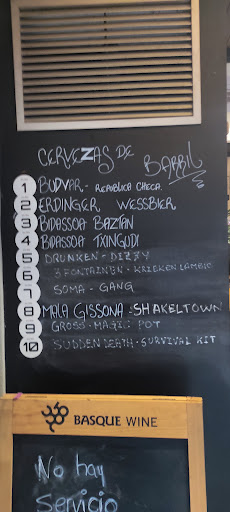 CERVEZAS DE BARRIL
1 BUDVAR - REPUBLICA CHECA.
2 ERDINGER WESSBIER
3 BIDASSOA BAZTÁN
4 BIDASSOA TXINGUDI
5 DRUNKEN - DIZZY
6 3 FONTAINEN - KRIEKEN LAMBIC
7 SOMA - GANG
8 MALA GISSONA - SHAKELTOWN
9 GROSS - MAGIC POT
10 SUDDEN DEATH - SURVIVAL KIT
BASQUE WINE
No hay
Servicio